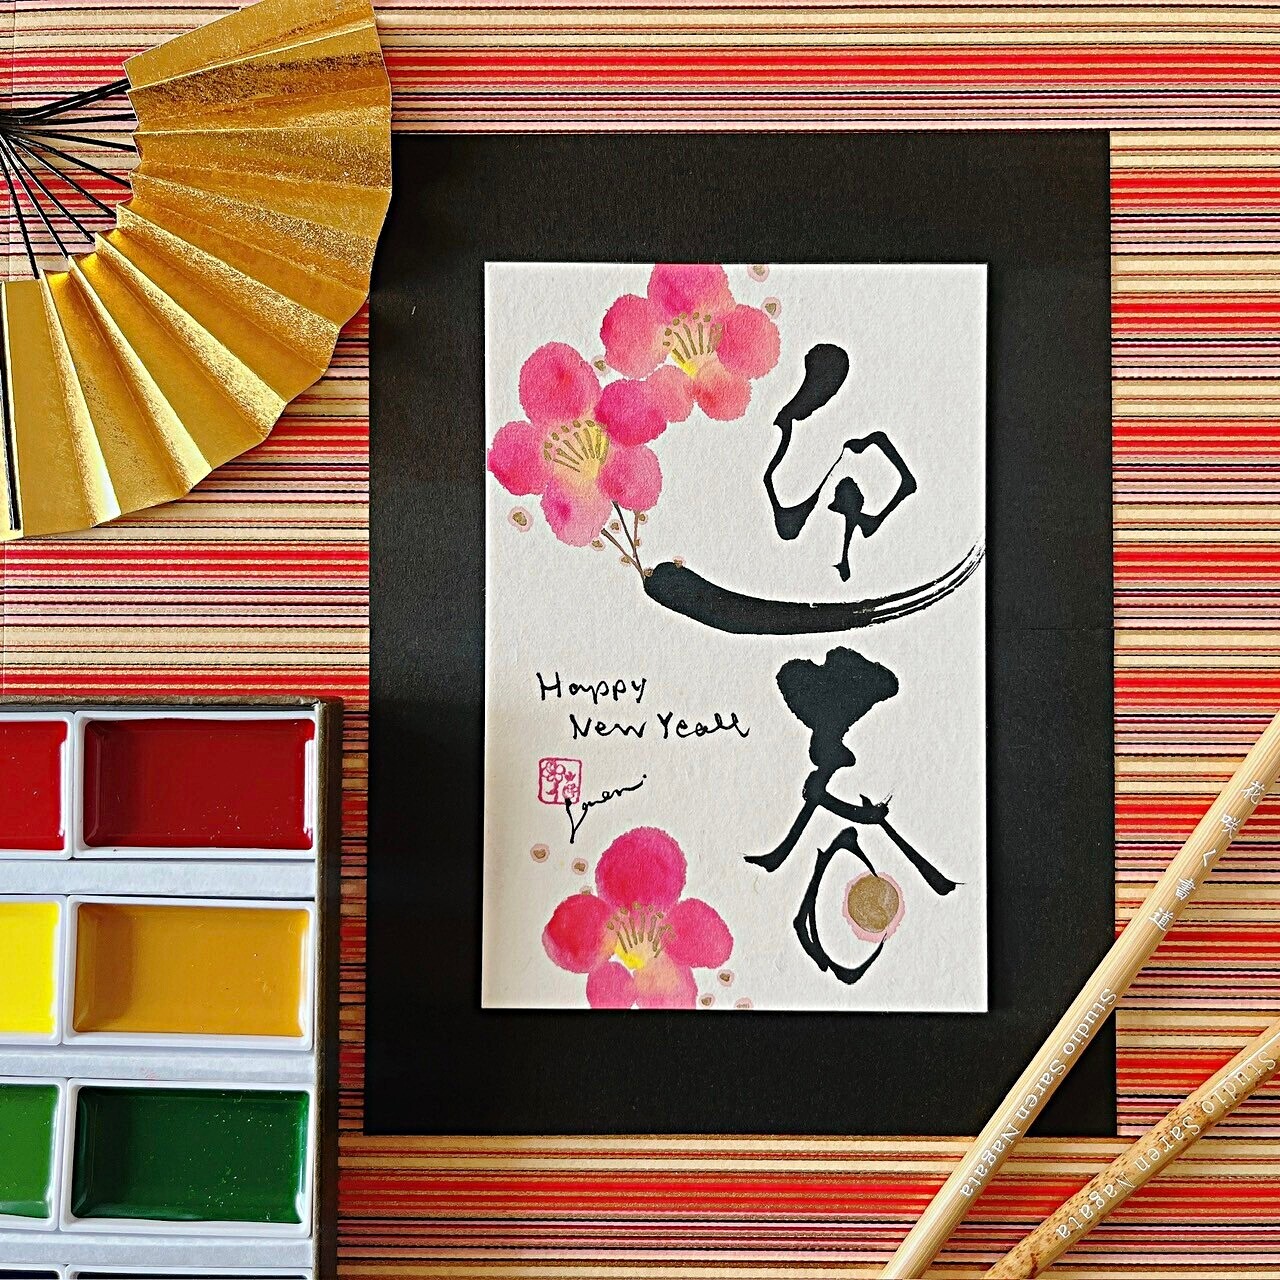 迎春
Happy
New Year
Saren
花咲く書道 Studio Saren Nagata
Studio Saren Nagata